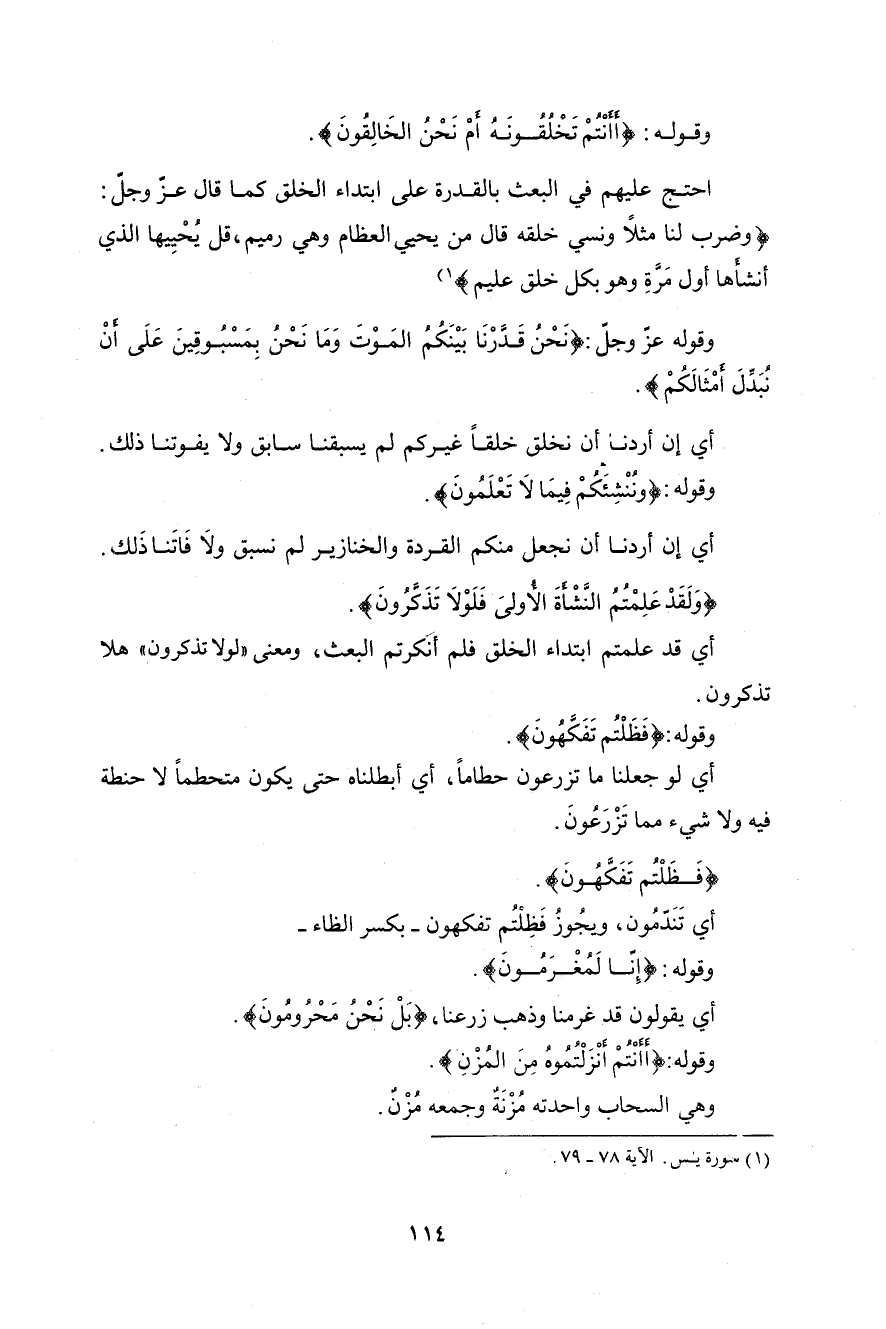 وقوله : ﴿أَأَنْتُمْ تَخْلُقُونَهُ أَمْ نَحْنُ الخَالِقُونَ﴾.
احتج عليهم في البعث بالقدرة على ابتداء الخلق كما قال عزّ وجلّ :
﴿وضرب لنا مثلاً ونسي خلقه قال من يحيي العظام وهي رميم، قل يُحْيِيها الذي
أنشأَها أول مَرَّةٍ وهو بكل خلق عليم﴾(١)
وقوله عزّ وجلّ :﴿نَحْنُ قَدَّرْنَا بَيْنَكُمُ المَوْتَ وَمَا نَحْنُ بِمَسْبُوقِينَ عَلَى أَنْ
نُبَدِّلَ أَمْثَالَكُمْ﴾.
أي إن أردنا أن نخلق خلقاً غيركم لم يسبقنا سابق ولا يفوتنا ذلك.
وقوله :﴿ونُنْشِئَكُمْ فِيمَا لَا تَعْلَمُونَ﴾.
أي إن أردنا أن نجعل منكم القردة والخنازير لم نسبق ولَا فَاتَنا ذَلك.
﴿وَلَقَدْ عَلِمْتُمُ النَّشْأَةَ الأُولىَ فَلَوْلَا تَذَكَّرُونَ﴾.
أي قد علمتم ابتداء الخلق فلم أنكرتم البعث، ومعنى «لولا تذكرون» هلا
تذكرون.
وقوله:﴿فَظَلْتُم تَفَكَّهُونَ﴾.
أي لو جعلنا ما تزرعون حطاماً، أي أبطلناه حتى يكون متحطماً لا حنطة
فيه ولا شيء مما تَزْرَعُونَ.
﴿فَظَلْتُم تَفَكَّهُونَ﴾.
أي تَنَدّمُون، ويجُوزُ فَظِلْتُم تفكهون ـ بكسر الظاء ـ
وقوله : ﴿إِنّا لَمُغْرَمُونَ﴾.
أي يقولون قد غرمنا وذهب زرعنا، ﴿بَلْ نَحْنُ مَحْرُومُونَ﴾.
وقوله:﴿أَأَنْتُمْ أَنْزَلْتُمُوهُ مِنَ المُزْنِ﴾.
وهي السحاب واحدته مُزْنَةٌ وجمعه مُزْنٌ.
(١) سورة يس. الآية ٧٨ ـ ٧٩.
١١٤